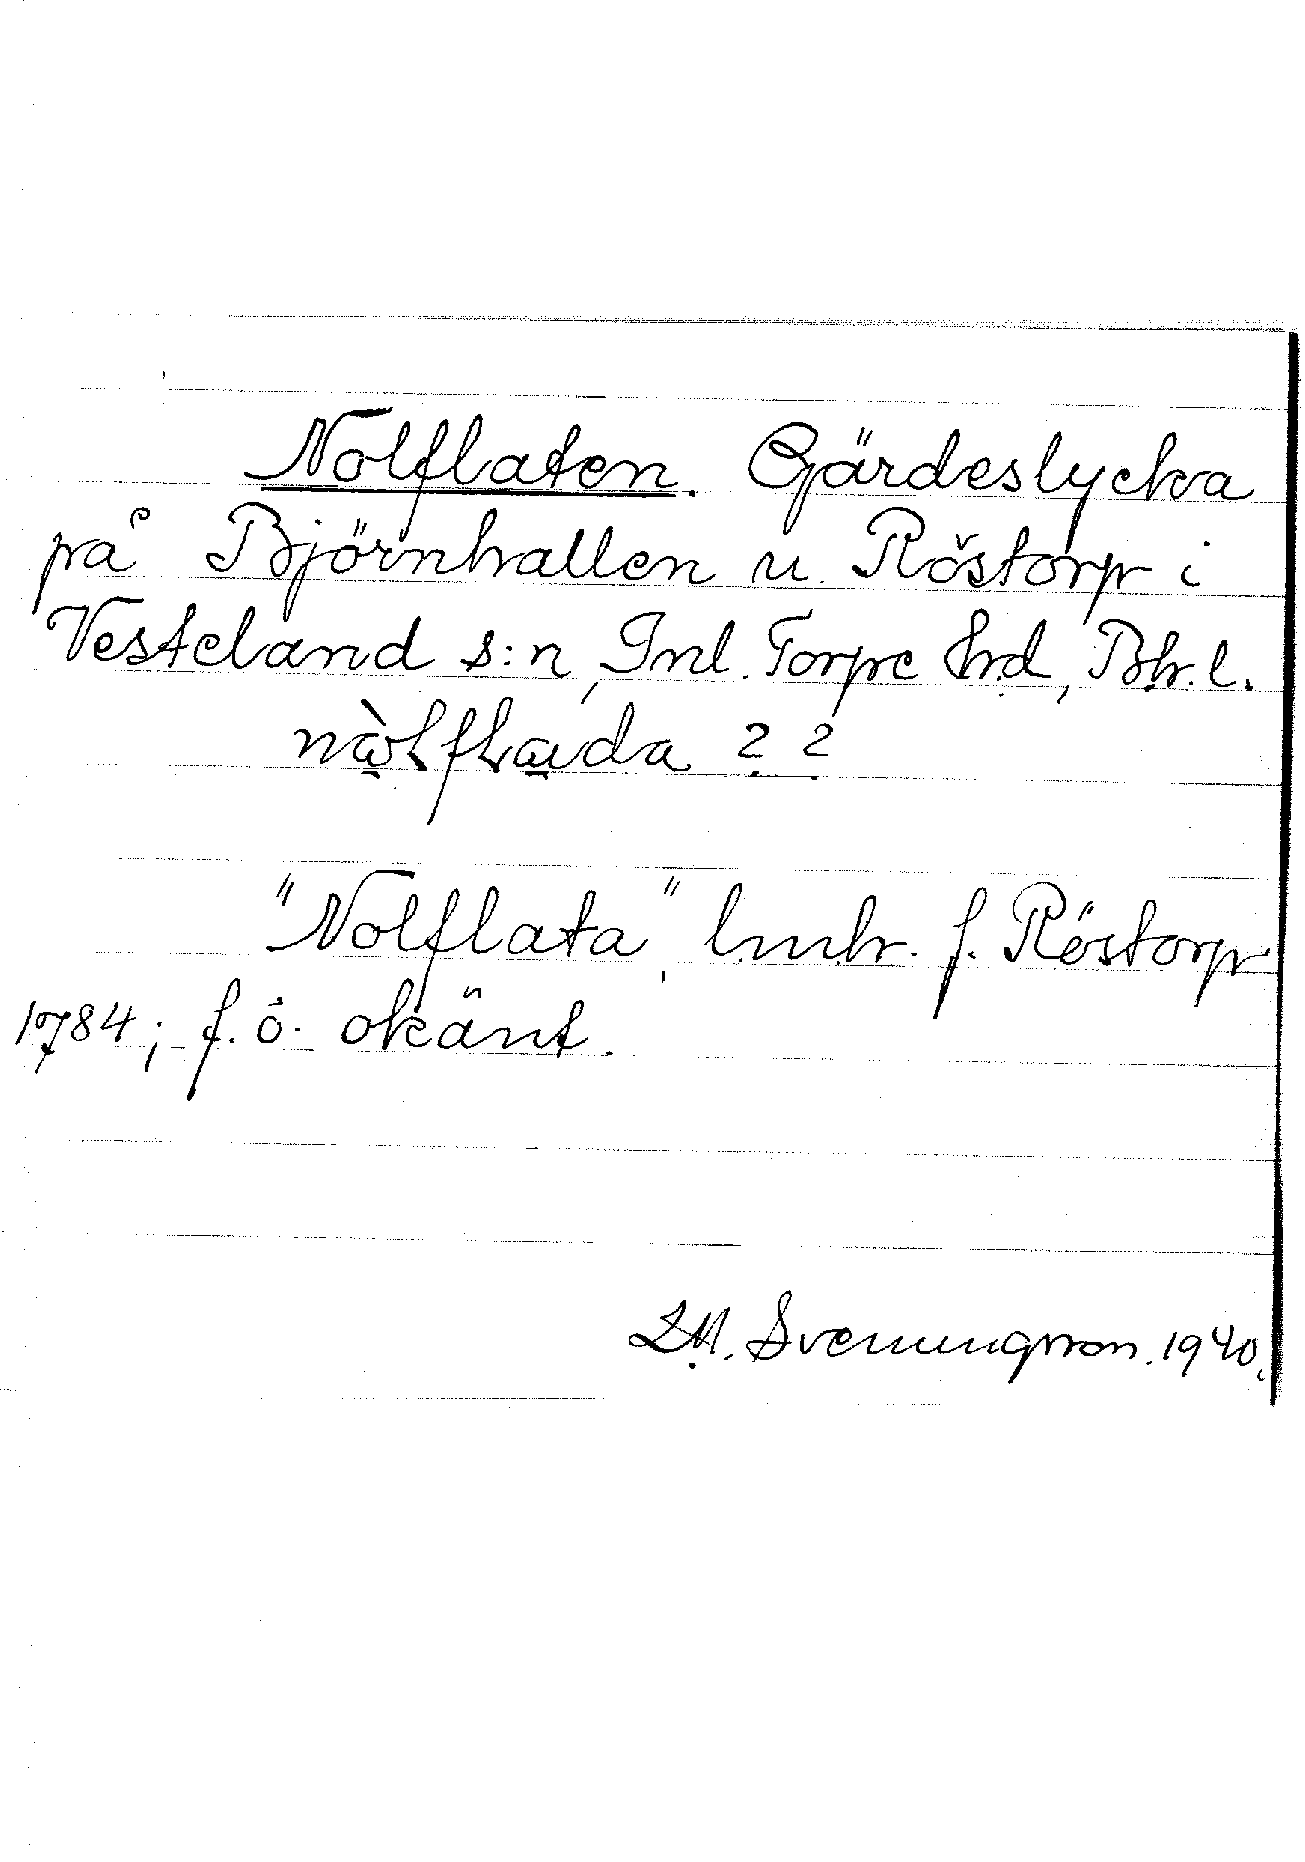 Nolflaten. Gärdeslycka
på Björnhallen u. Röstorp i
Vesteland s:n, Inl. Torpe hrd, Bh. l.
nàlflada 2 2
"Nolflata", lmhr. f. Röstorp
1784; f. ö. okänt.
L.M. Svenungsson. 1940.